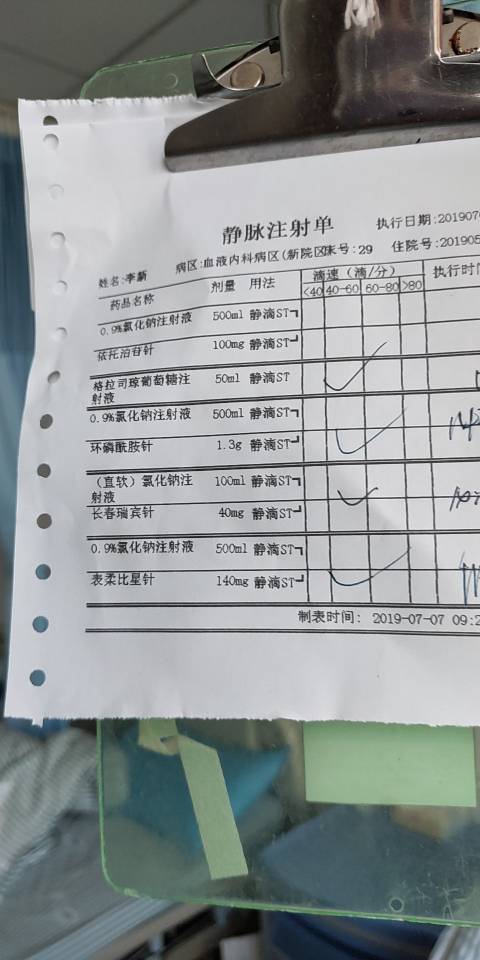 静脉注射单
执行日期:201907
姓名:李新 病区:血液内科病区(新院区床号:29 住院号:201905
药品名称 剂量 用法 滴速(滴/分) 执行时
<40 40-60 60-80 >80
0.9%氯化钠注射液 500ml 静滴ST
依托泊苷针 100mg 静滴ST
格拉司琼葡萄糖注 50ml 静滴ST
射液
0.9%氯化钠注射液 500ml 静滴ST
环磷酰胺针 1.3g 静滴ST
(直软)氯化钠注 100ml 静滴ST
射液
长春瑞宾针 40mg 静滴ST
0.9%氯化钠注射液 500ml 静滴ST
表柔比星针 140mg 静滴ST
制表时间: 2019-07-07 09:2